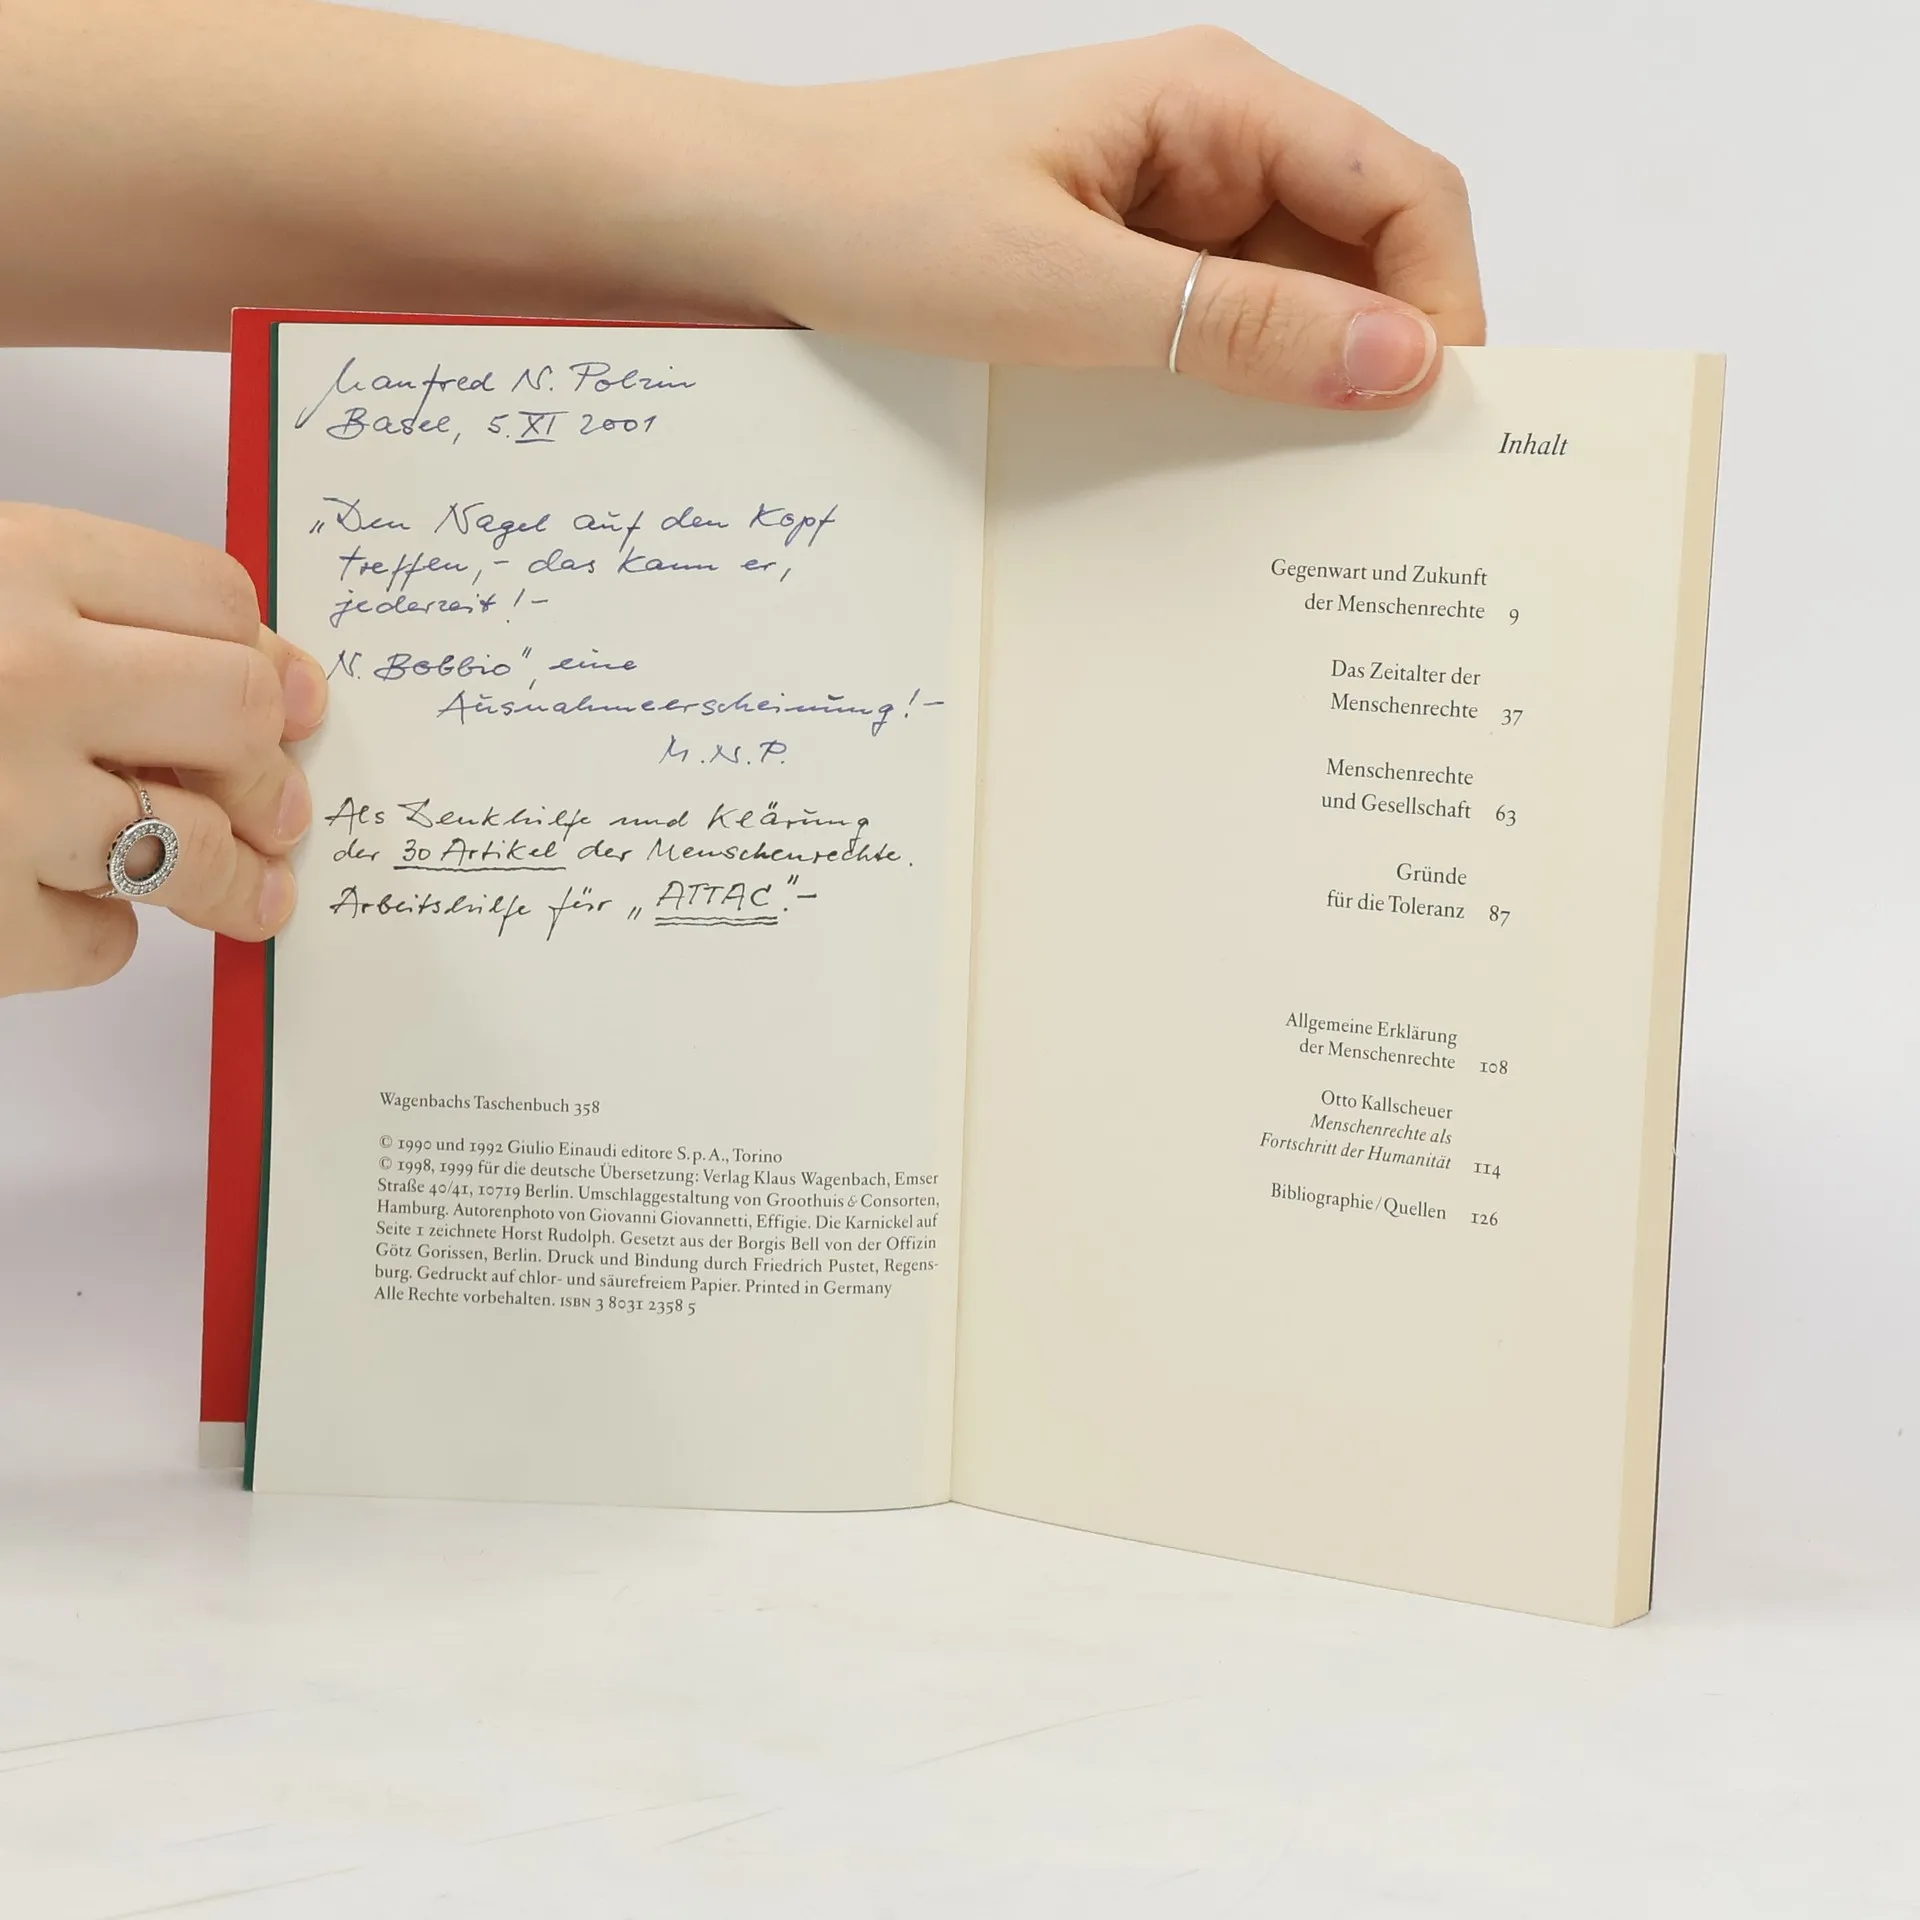 Manfred N. Polzin
Basel, 5. XI 2001
„Den Nagel auf den Kopf
treffen, - das kann er,
jederzeit! -
N. Bobbio", eine
Ausnahmeerscheinung! -
M. N. P.
Als Denkhilfe und Klärung
der 30 Artikel der Menschenrechte.
Arbeitshilfe für „ATTAC". -
Wagenbachs Taschenbuch 358
© 1990 und 1992 Giulio Einaudi editore S. p. A., Torino
© 1998, 1999 für die deutsche Übersetzung: Verlag Klaus Wagenbach, Emser
Straße 40/41, 10719 Berlin. Umschlaggestaltung von Groothuis & Consorten,
Hamburg. Autorenphoto von Giovanni Giovannetti, Effigie. Die Karnickel auf
Seite 1 zeichnete Horst Rudolph. Gesetzt aus der Borgis Bell von der Offizin
Götz Gorissen, Berlin. Druck und Bindung durch Friedrich Pustet, Regens-
burg. Gedruckt auf chlor- und säurefreiem Papier. Printed in Germany
Alle Rechte vorbehalten. ISBN 3 8031 2358 5
Inhalt
Gegenwart und Zukunft
der Menschenrechte 9
Das Zeitalter der
Menschenrechte 37
Menschenrechte
und Gesellschaft 63
Gründe
für die Toleranz 87
Allgemeine Erklärung
der Menschenrechte 108
Otto Kallscheuer
Menschenrechte als
Fortschritt der Humanität 114
Bibliographie/Quellen 126